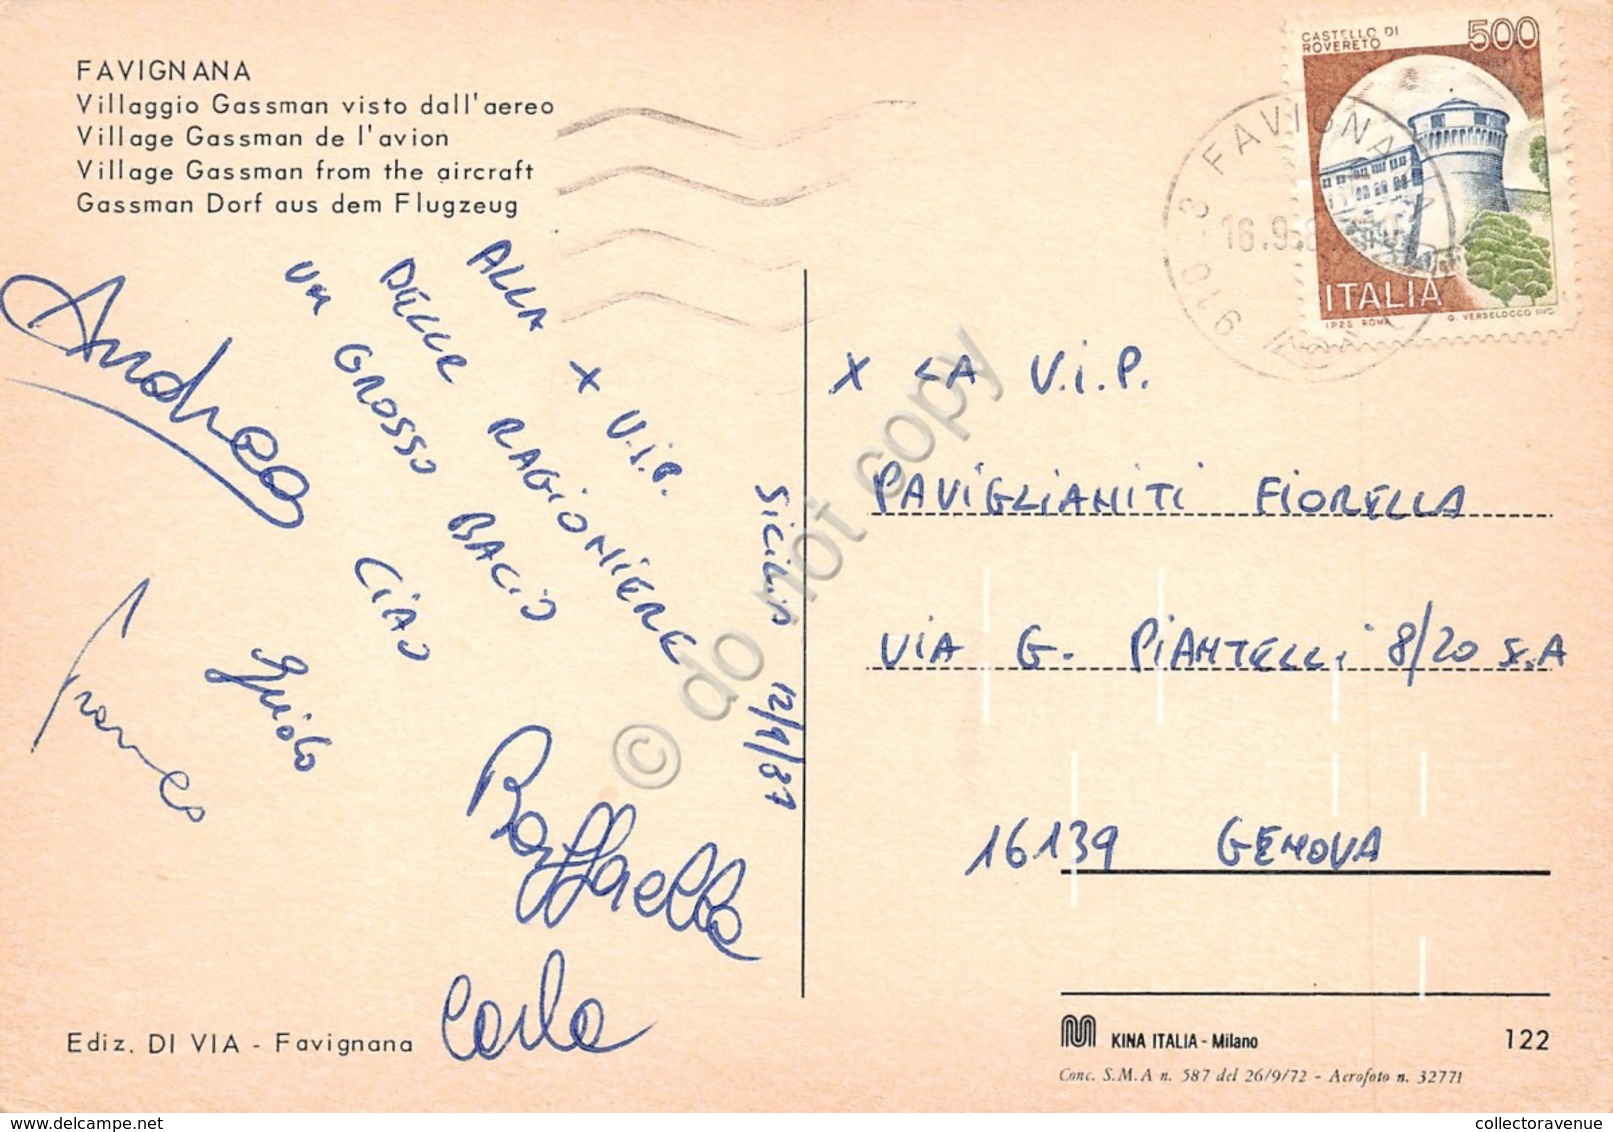 FAVIGNANA
Villaggio Gassman visto dall'aereo
Village Gassman de l'avion
Village Gassman from the aircraft
Gassman Dorf aus dem Flugzeug
CASTELLO DI
ROVERETO
500
ITALIA
I.P.Z.S. ROMA
G. VERDELOCCO INC.
FAVIGNANA
16.9.8
ALLA X V.i.P.
DELLE RAGIONIERE
UN GROSSO BACIO
CIAO
Andrea
Franco
Guido
Raffaella
Carla
SICILIA 12/9/87
X LA V.i.P.
PAVIGLIANITI FIORELLA
VIA G. PIANTELLI 8/20 S.A
16139 GENOVA
© do not copy
Ediz. DI VIA - Favignana
KINA ITALIA - Milano
122
Conc. S.M.A n. 587 del 26/9/72 - Aerofoto n. 32771
www.collectoravenue.com